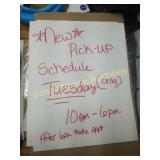 *New*
Pick-up
Schedule
Tuesday (only)
10am - 6pm.
After 6pm. make Appt